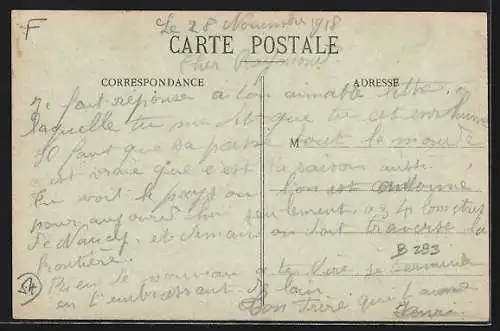 F
Le 28 Novembre 1918
CARTE POSTALE
Cher Raymond
CORRESPONDANCE
ADRESSE
Je fait réponse a ton aimable lettre
laquelle tu me dit que tu est enrhumé
M
Il faut que sa passe tout le monde
est vraie que c'est la saison aussi.
En voit le pays ou l'on est
pour aujourd'hui seulement a 34
de Nancy. et demain on doit traverse la
frontière.
B 293
Rien de nouveau a te dire je termine
en t'embrassant de loin
Ton frère qui t'aime
Henri